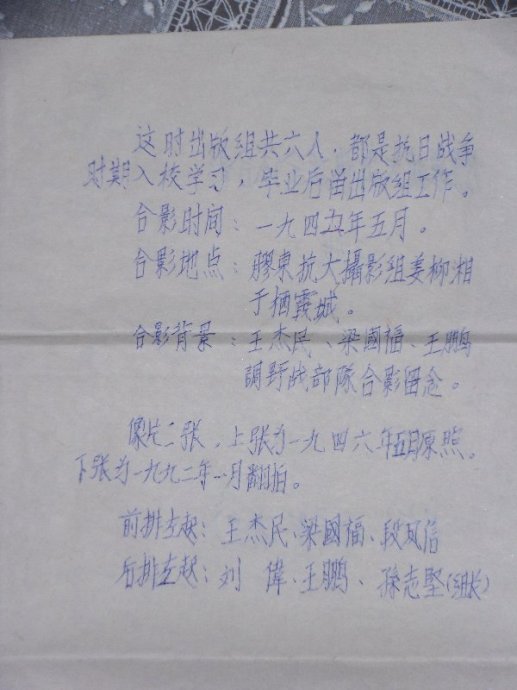 这时出版组共六人，都是抗日战争
时期入校学习，毕业后留出版组工作。
合影时间：一九四五年五月。
合影地点：膠東抗大攝影组姜柳湘
于栖霞城。
合影背景：王杰民、梁國福、王鵬
調野战部隊合影留念。
像片二张，上张为一九四六年五月原照。
下张为一九九二年一月翻拍。
前排左起：王杰民、梁國福、段凤信
后排左起：刘偉、王鵬、孫志堅(组长)